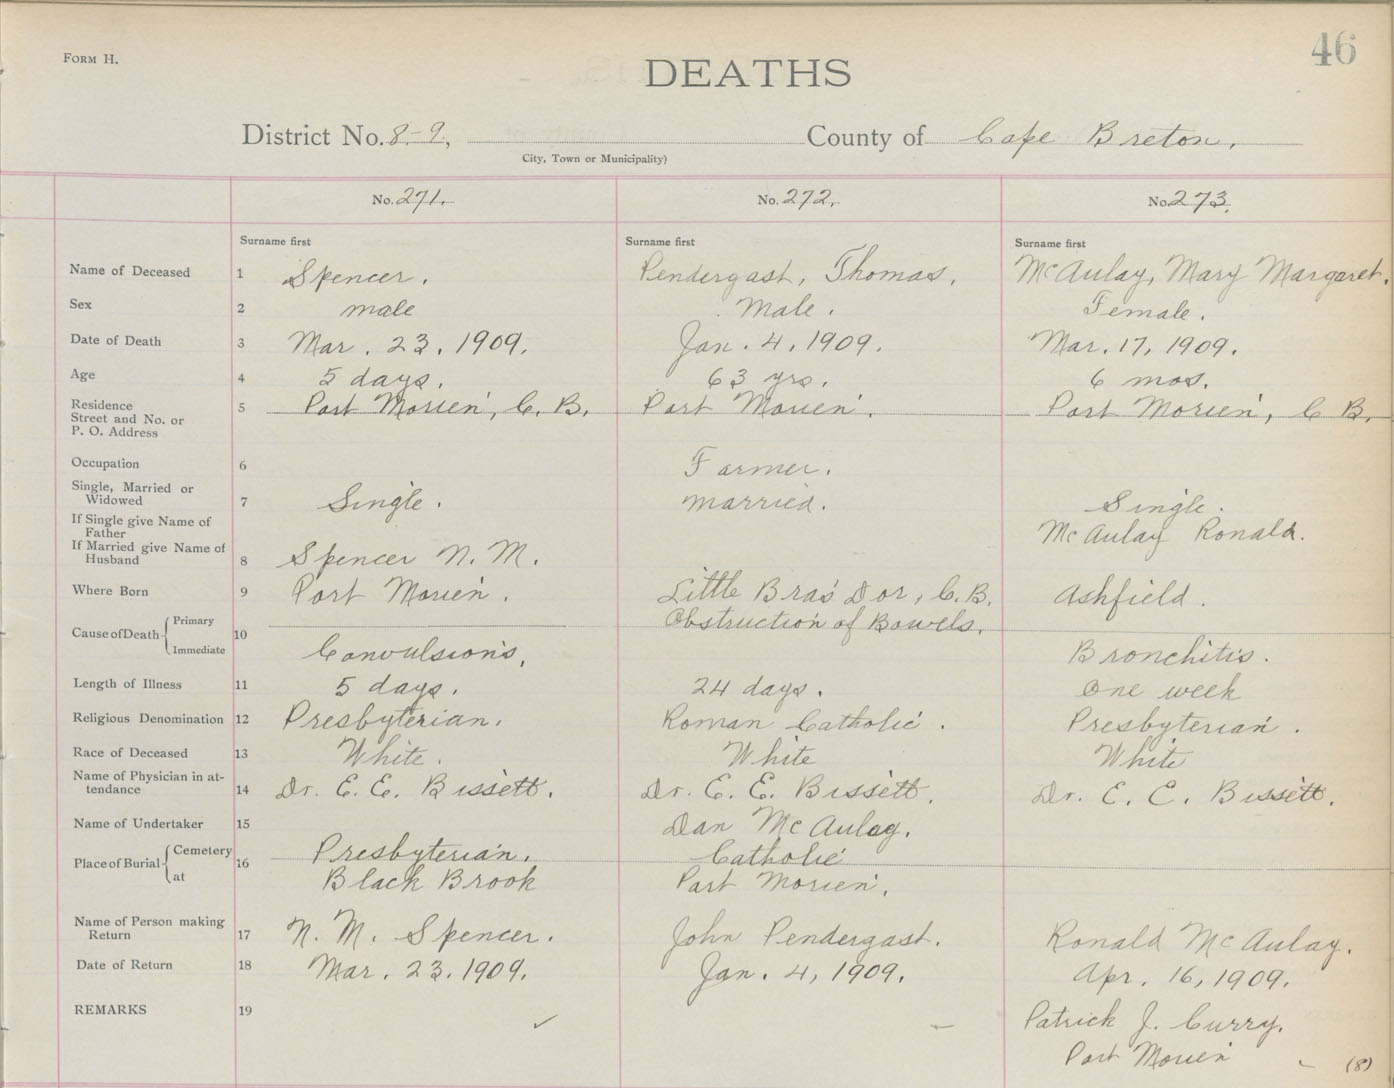 FORM H.
46
DEATHS
District No. 8-9, County of Cape Breton.
City, Town or Municipality)
No. 271. No. 272. No. 273.
Surname first Surname first Surname first
Name of Deceased 1 Spencer. Pendergast, Thomas. McAulay, Mary Margaret.
Sex 2 male Male. Female.
Date of Death 3 Mar. 23. 1909. Jan. 4, 1909. Mar. 17, 1909.
Age 4 5 days. 63 yrs. 6 mos.
Residence 5 Port Morien, C. B. Port Morien. Port Morien, C B.
Street and No. or
P. O. Address
Occupation 6 Farmer.
Single, Married or
Widowed 7 Single. married. Single.
If Single give Name of
Father McAulay Ronald.
If Married give Name of
Husband 8 Spencer N. M.
Where Born 9 Port Morien. Little Bras Dor, C.B. Ashfield.
Cause of Death { Primary 10 Obstruction of Bowels.
Immediate Convulsions, Bronchitis.
Length of Illness 11 5 days. 24 days. One week
Religious Denomination 12 Presbyterian. Roman Catholic. Presbyterian.
Race of Deceased 13 White. White White
Name of Physician in at-
tendance 14 Dr. E. E. Bissett. Dr. E. E. Bissett. Dr. E. E. Bissett.
Name of Undertaker 15 Dan McAulay.
Place of Burial { Cemetery 16 Presbyterian. Catholic
at Black Brook Port Morien.
Name of Person making
Return 17 N. M. Spencer. John Pendergast. Ronald McAulay.
Date of Return 18 Mar. 23. 1909. Jan. 4, 1909. Apr. 16, 1909.
REMARKS 19 Patrick J. Curry.
Port Morien
(8)